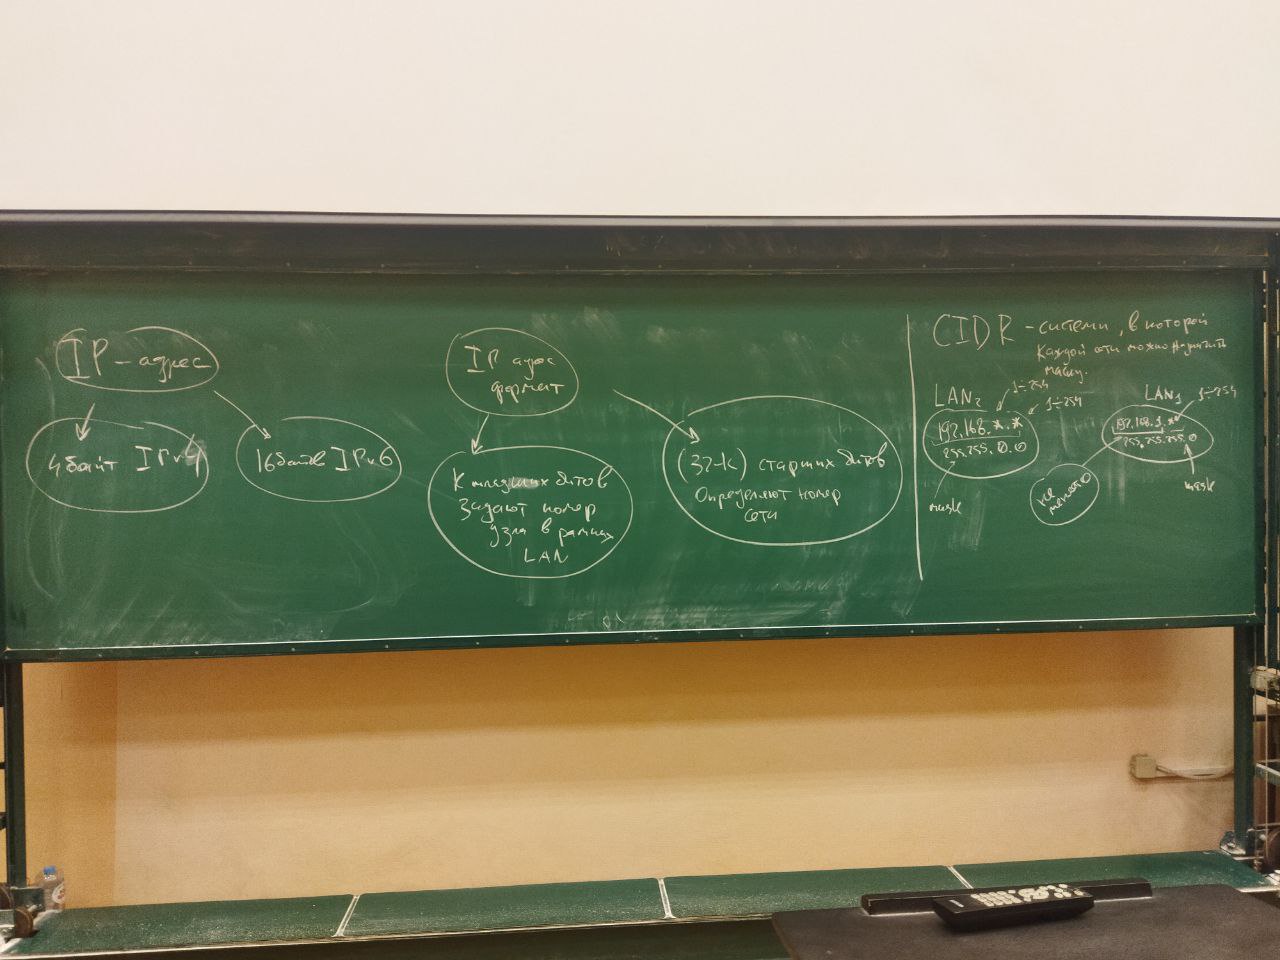 IP - адрес
4 байт IPv4
16 байтов IPv6
IP адрес
формат
K младших битов
задают номер
узла в рамках
LAN
(32-k) старших битов
Определяют номер
сети
CIDR - система, в которой
каждой сети можно назначить
маску.
LAN2
1÷254
1÷254
192.168.*.*
255.255.0.0
mask
LAN1
1÷254
192.168.1.*
255.255.255.0
mask
не